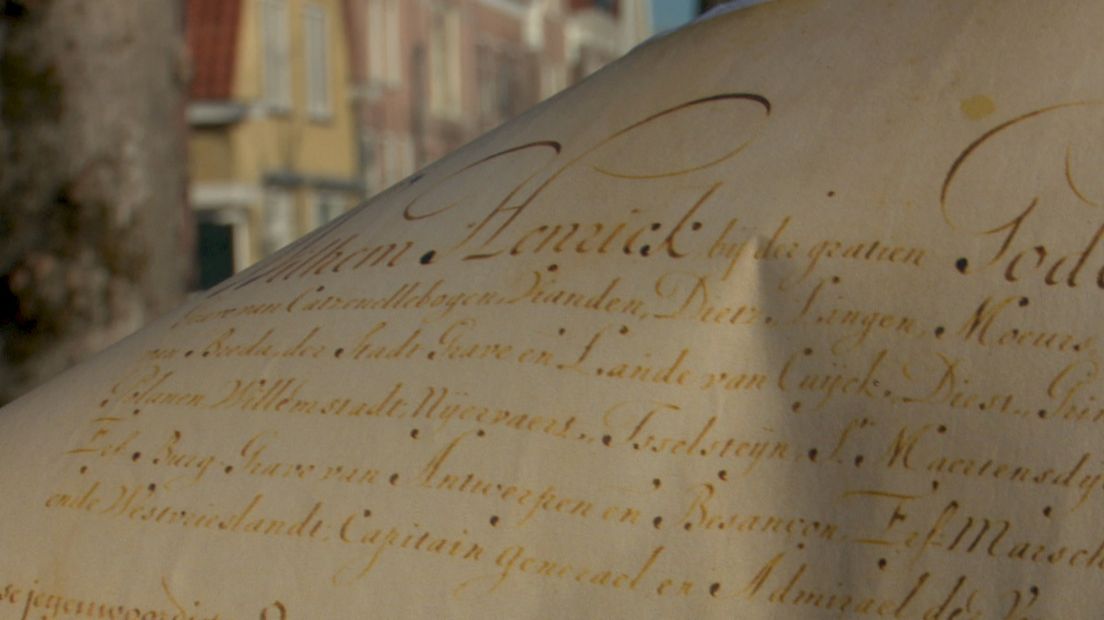 Wilhem Henrick bij der gratien Gode
Heere van Catzenellebogen, Vianden, Dietz, Lingen, Moeurs,
van Breda, der Stadt Grave en Lande van Cuijck, Diest, Grim
Polanen, Willemstadt, Nijervaert, Isselsteijn, St Maertensdij
Erf Burg-Grave van Antwerpen en Besançon Erf-Marsch
ende Westvrieslandt, Capitain generael en Admirael der
jegenwoordig